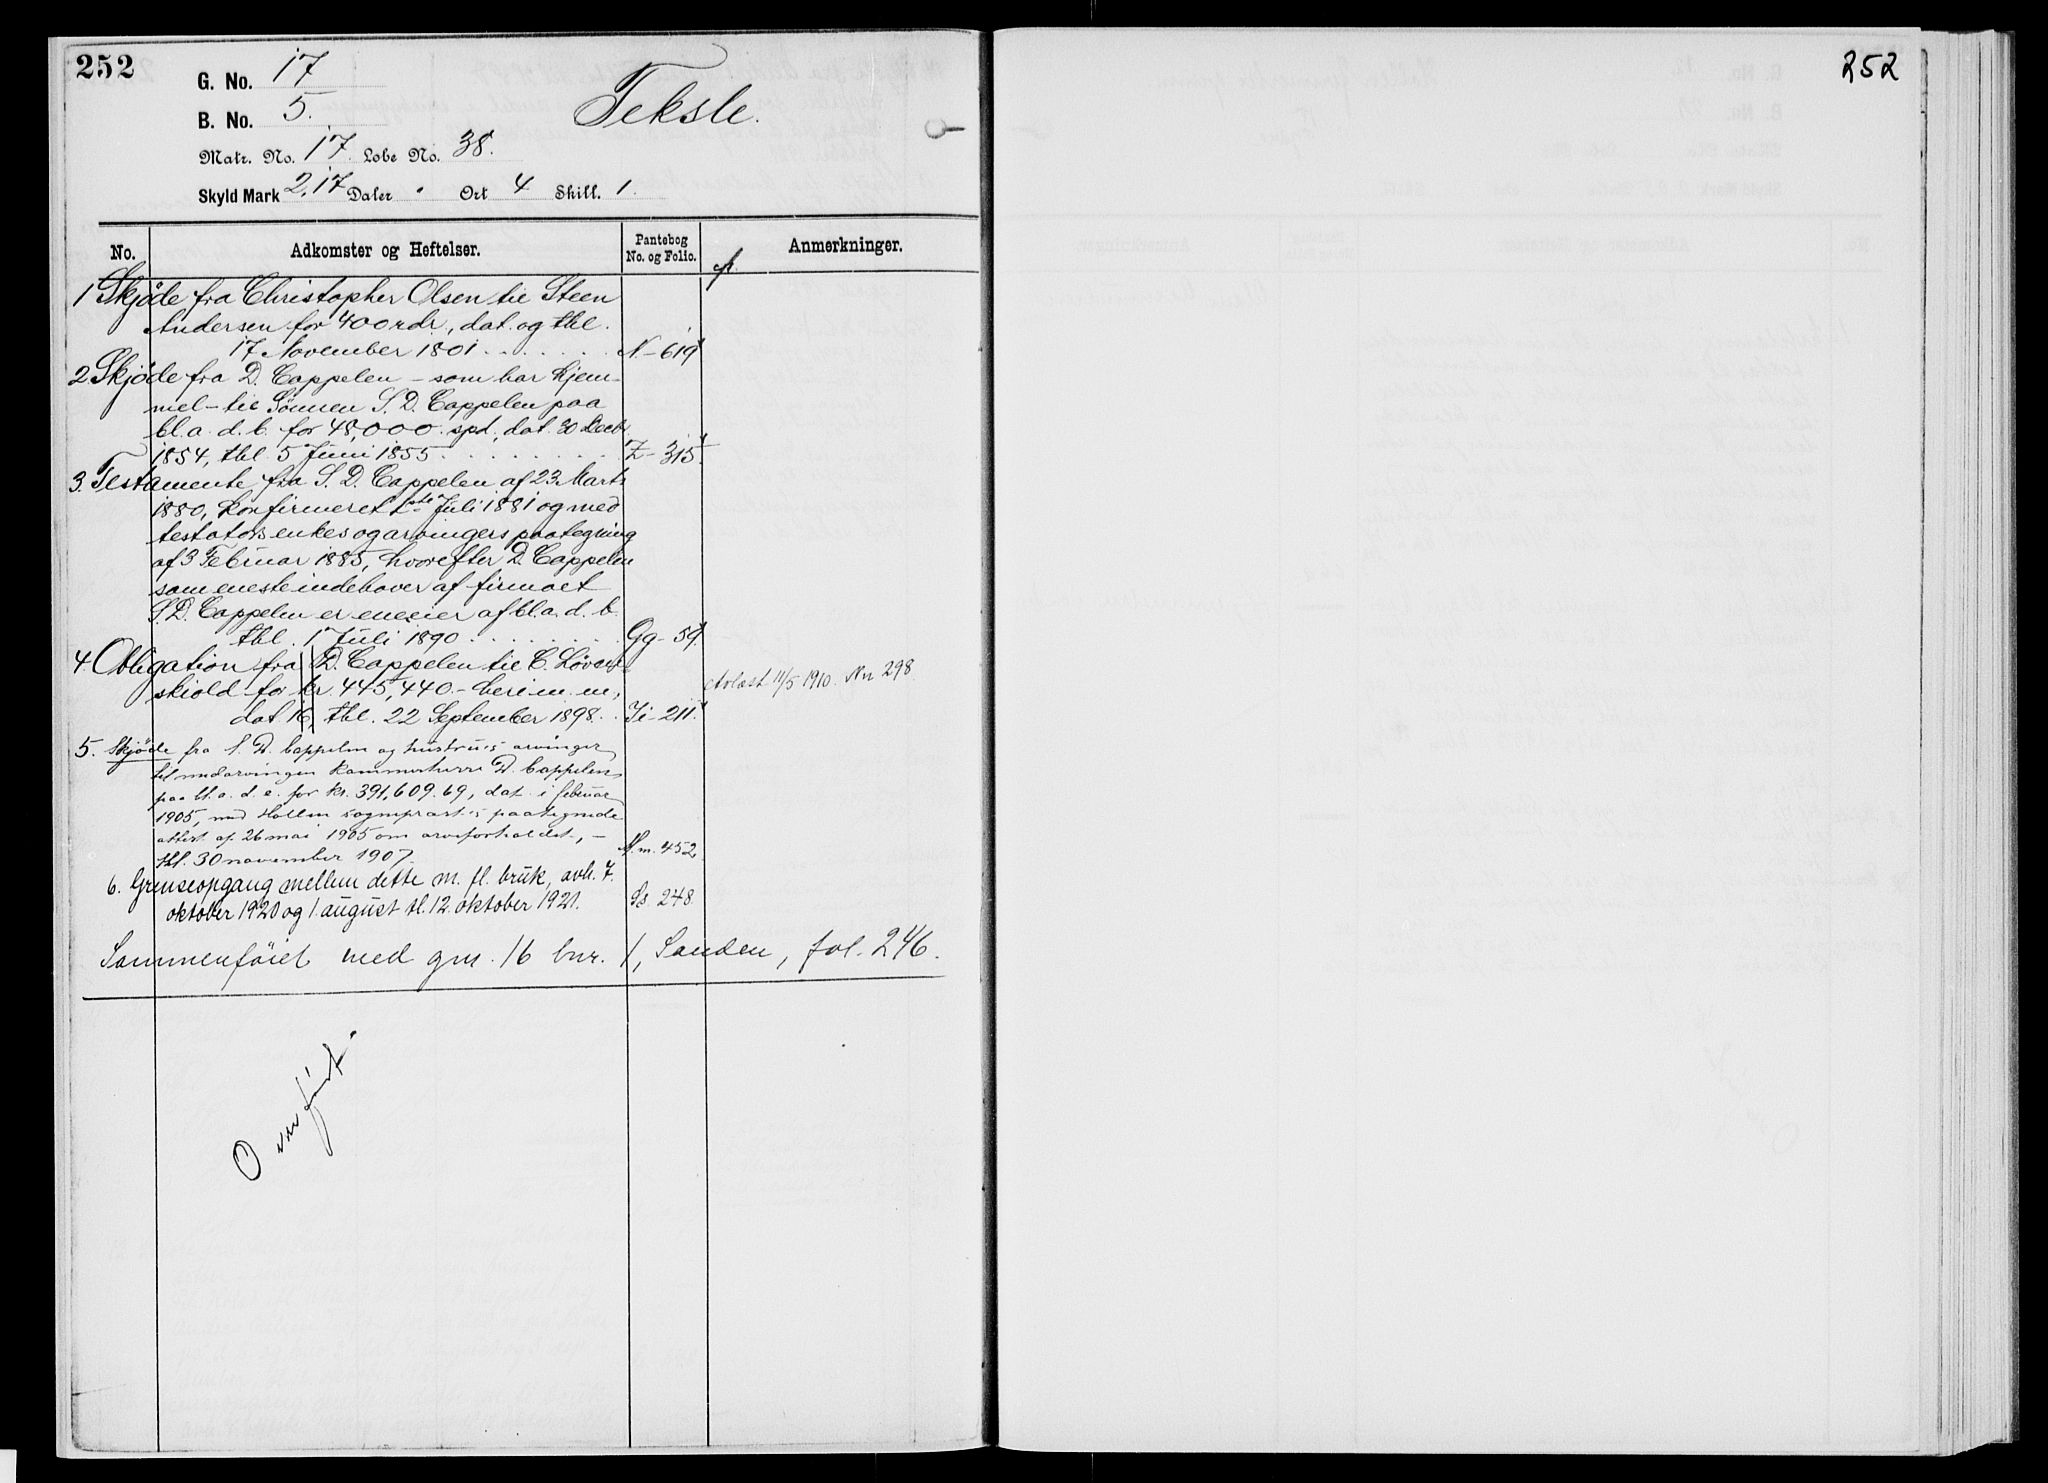 252
G. No. 17
B. No. 5.
Teksle.
Matr. No. 17. Løbe No. 38.
Skyld Mark 2,17 Daler " Ort 4 Skill. 1.
No. Adkomster og Heftelser. Pantebog No. og Folio. Anmerkninger.
1 Skjøde fra Christopher Olsen til Steen
Andersen for 400 rdr, dat. og tbl.
17 November 1801 . . . . . . N-619
2 Skjøde fra D. Cappelen - som har hjem-
mel - til Sönnen S. D. Cappelen paa
bl. a. d. b. for 48,000 spd., dat. 30 Decbr
1854, tbl. 5 Juni 1855 . . . . . . Z-315.
3. Testamente fra S. D. Cappelen af 23 Marts
1880, konfirmeret 1ste Juli 1881 og med
testators enkes og arvingers paategning
af 3 Februar 1885, hvorefter D. Cappelen
som eneste indehaver af firmaet
S. D. Cappelen er eneeier af bl. a. d. b.
tbl. 1 Juli 1890 . . . . . . Gg-59.
4. Obligation fra D. Cappelen til C. Løven-
skiold for kr. 445,440.- heri m. m., Avlæst 11/5 1910. Nr 298.
dat. 16, tbl. 22 September 1898 . . Ii-211.
5. Skjöde fra S. D. Cappelen og hustru's arvinger
til medarvingen kammerherre D. Cappelen
paa bl. a. d. e. for kr. 391,609.69, dat. i februar
1905, med Hollen sognepræst's paategnede
attest af 26 mai 1905 om arveforholdet, -
tbl. 30 november 1907. M.m. 452.
6. Grenseopgang mellem dette m. fl. bruk, avh. 7.
oktober 1920 og 1. august tl. 12. oktober 1921. Ss. 248.
Sammenföiet med gnr. 16 bnr. 1, Sanden, fol. 246.
Overført.
252